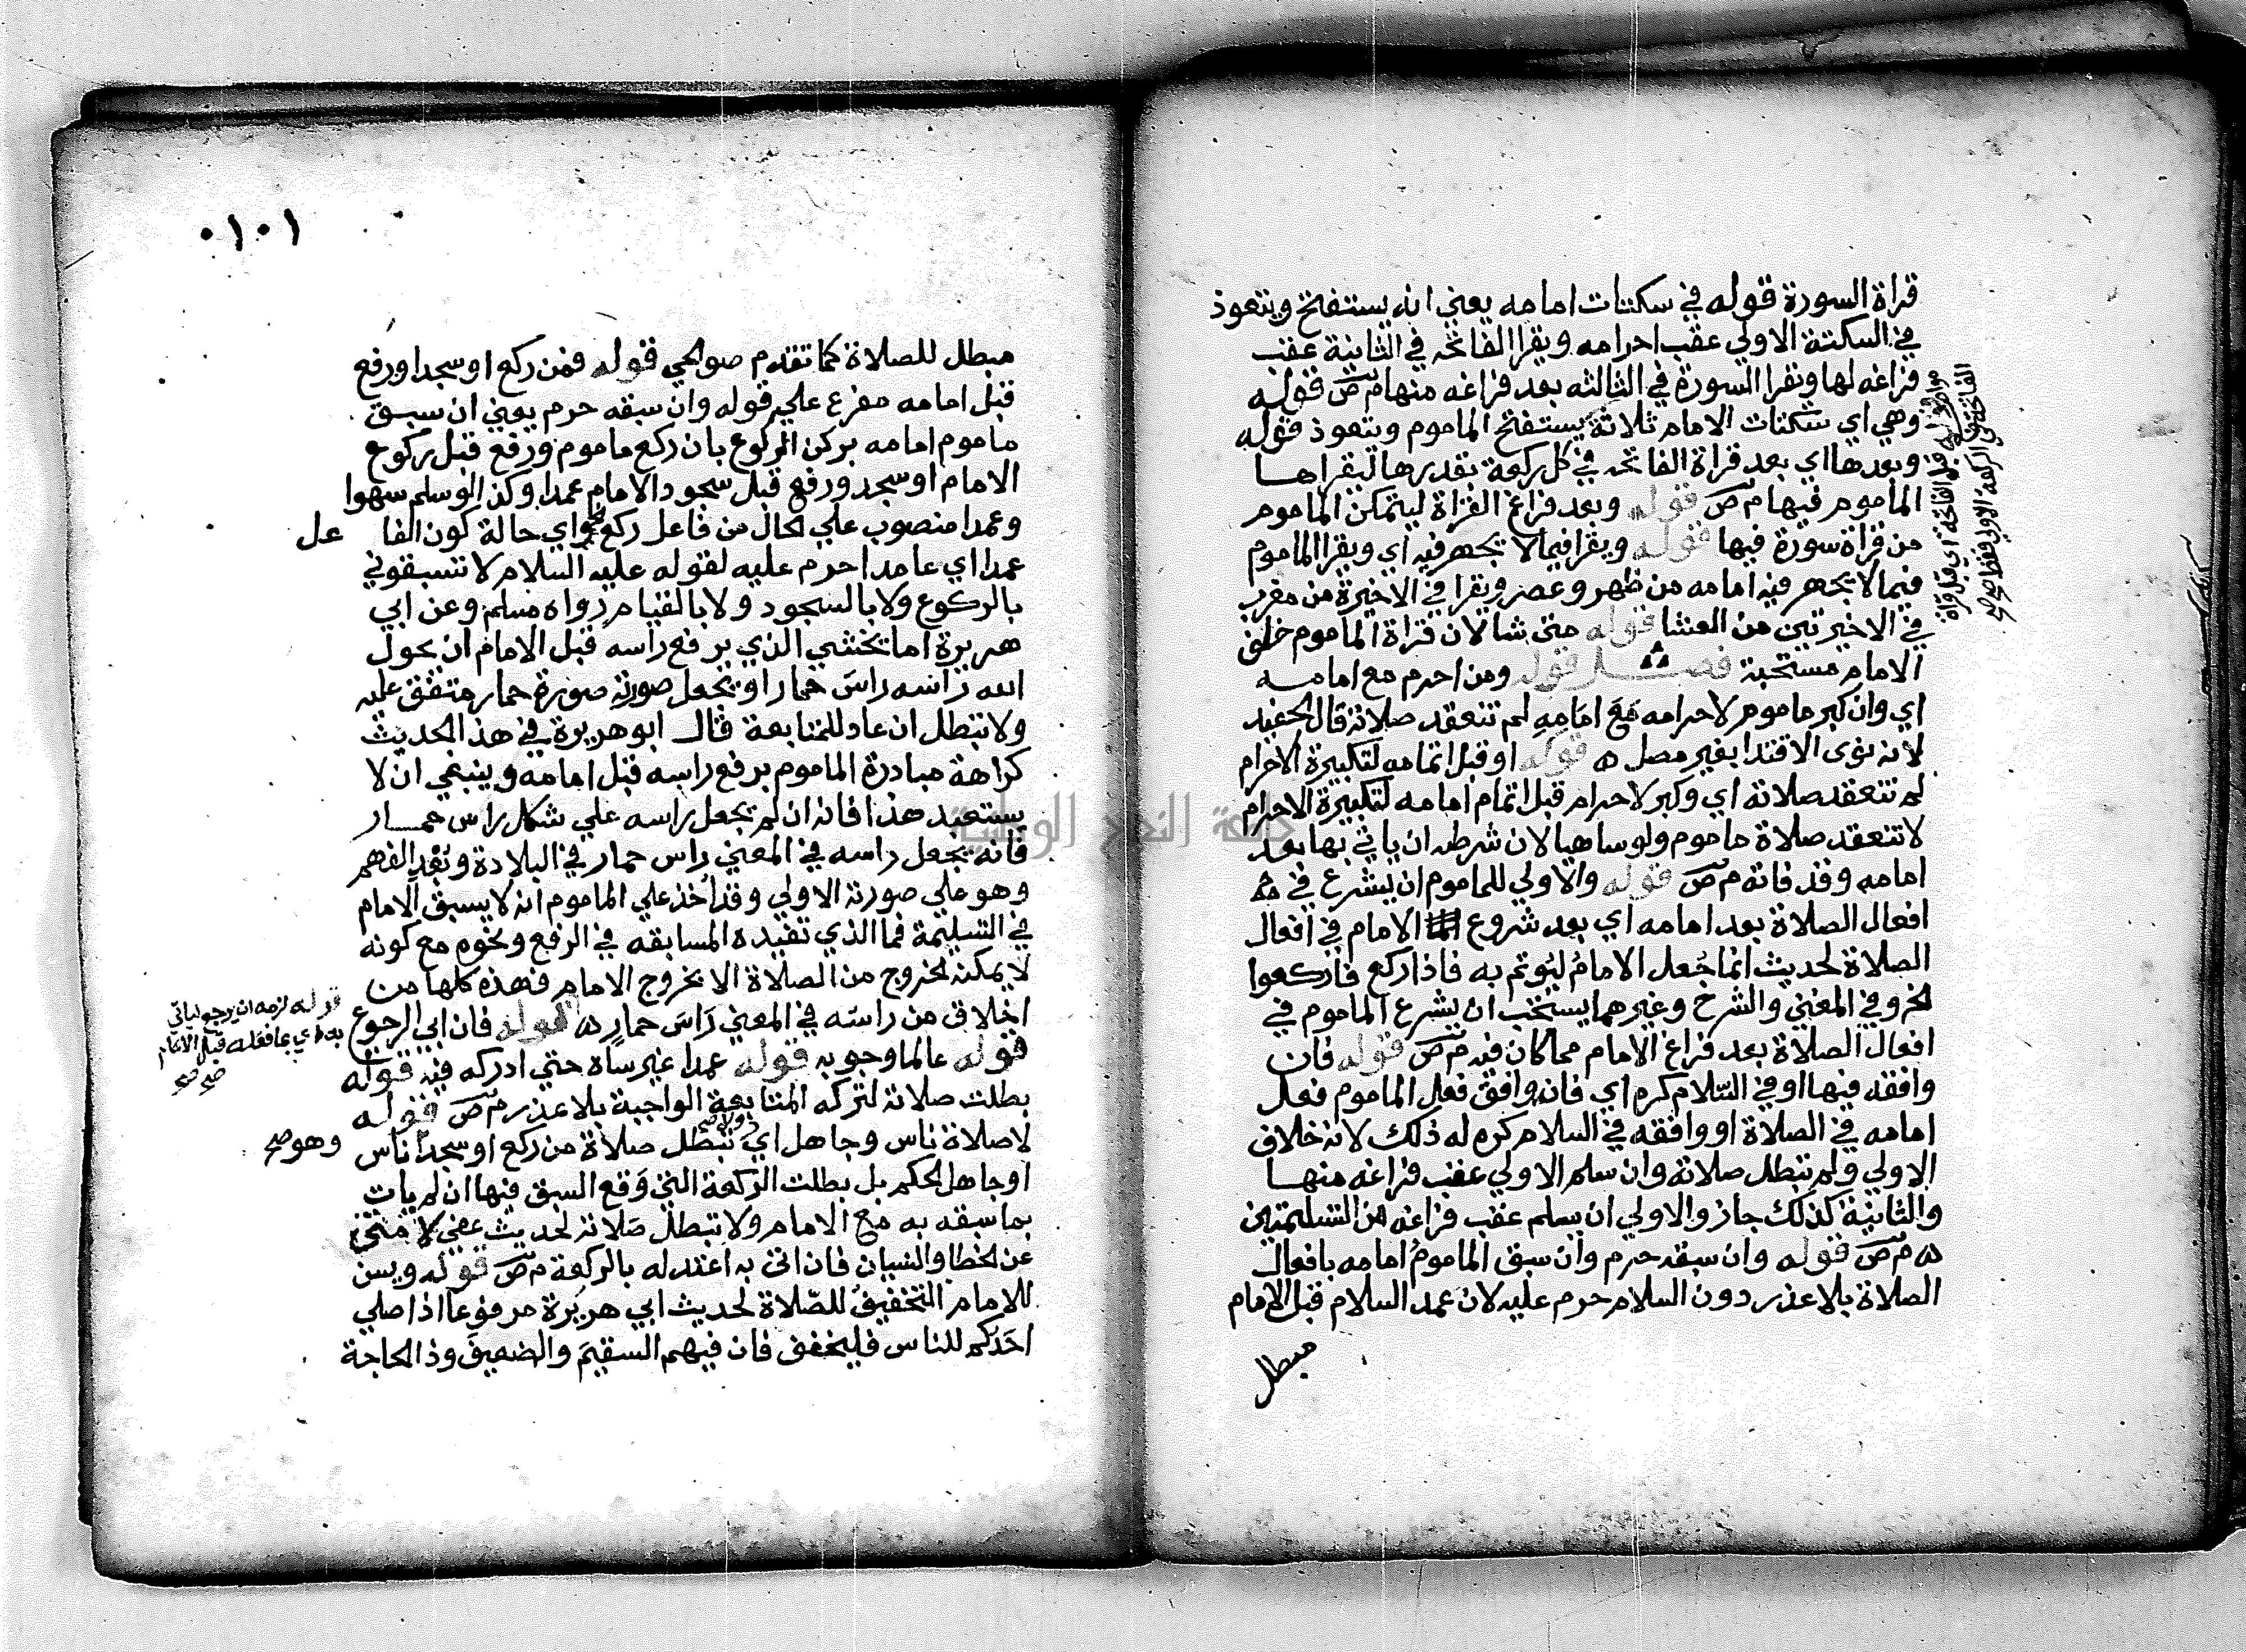 قراة السورة قوله في سكتات امامه يعني انه يستفتح ويتعوذ
في السكتة الاولي عقب احرامه ويقرا الفاتحه في الثانية عقب
فراغه لها ويقرا السورة في الثالثه بعد فراغه منها م ص قوله
وهي اي سكتات الامام ثلاثة يستفتح الماموم ويتعوذ قوله
وبعدها اي بعد قراة الفاتحه في كل ركعة بقدرها ليقراها
الماموم فيها م ص قوله وبعد فراغ القراة ليتمكن الماموم
من قراة سورة فيها قوله ويقرا فيما لا يجهر فيه اي ويقرا الماموم
فيما لا يجهر فيه امامه من ظهر وعصر ويقرا في الاخيرة من مغرب
في الاخيرتين من العشا قوله متى شا لان قراة الماموم خلف
الامام مستحبة فصل قوله ومن احرم مع امامه
اي وان كبر ماموم لاحرامه مع امامه لم تنعقد صلاته قال الحفيد
لانه نوى الاقتدا بغير مصل ه قوله او قبل اتمامه لتكبيرة الاحرام
لم تنعقد صلاته اي وكبر لاحرام قبل اتمام امامه لتكبيرة الاحرام
لا تنعقد صلاة ماموم ولو ساهيا لان شرطه ان ياتي بها بعد
امامه وقد فاته م ص قوله والاولي للماموم ان يشرع في
افعال الصلاة بعد امامه اي بعد شروع الامام في افعال
الصلاة لحديث انما جُعل الامامُ ليُوتم به فاذا ركع فاركعوا
الخ وفي المغني والشرح وغيرهما يستحب ان يشرع الماموم في
افعال الصلاة بعد فراغ الامام مما كان فيه م ص قوله فان
وافقه فيها او في السلام كره اي فان وافق فعل الماموم فعل
امامه في الصلاة او وافقه في السلام كره له ذلك لانه خلاف
الاولي ولم تبطل صلاته وان سلم الاولي عقب فراغه منها
والثانية كذلك جاز والاولي ان يسلم عقب فراغه من التسليمتين
ه م ص قوله وان سبقه حرم وان سبق الماموم امامه بافعال
الصلاة بلا عذر دون السلام حرم عليه لان عمد السلام قبل الامام
مبطل
١٠١٠
مبطل للصلاة كما تقدم صوالحي قوله فمن ركع او سجد او رفع
قبل امامه مفرع علي قوله وان سبقه حرم يعني ان سبق
ماموم امامه بركن الركوع بان ركع ماموم ورفع قبل ركوع
الامام او سجد ورفع قبل سجود الامام عمدا وكذا لو سلم سهوا
وعمدا منصوب علي الحال من فاعل ركع اي حالة كون الفا عل
عمدا اي عامدا حرم عليه لقوله عليه السلام لا تسبقوني
بالركوع ولا بالسجود ولا بالقيام رواه مسلم وعن ابي
هريرة اما يخشي الذي يرفع راسه قبل الامام ان يحول
الله راسه راسَ حمار او يجعل صورته صورة حمار متفق عليه
ولا تبطل ان عاد للمتابعة قال ابو هريرة في هذ الحديث
كراهة مبادرة الماموم برفع راسه قبل امامه وينبغي ان لا
يستعبد هذا فانه ان لم يجعل راسه علي شكل راس حمار
فانه يجعل راسه في المعني راس حمار في البلادة وبُعد الفهم
وهو علي صورته الاولي وقد اُخذ علي الماموم انه لا يسبق الامام
في التسليمة فما الذي تفيده المسابقه في الرفع ونحوه مع كونه
لا يمكنه الخروج من الصلاة الا بخروج الامام فهذه كلها من
اخلاق من راسه في المعني رَاسَ حمارٍ ه قوله فان ابي الرجوع
قوله عالما وجوبه قوله عمدا غير ساه حتي ادركه فيه قوله
بطلت صلاته لتركه المتابعة الواجبة بلا عذر م ص قوله
لا صلاة ناس وجاهل اي تبطل صلاة من ركع او سجد ناس وهو صح
او جاهل الحكم بل بطلت الركعة التي وَقع السبق فيها ان لم يات
بما سبقه به مع الامام ولا تبطل صَلاته لحديث عفي لامتي
عن الخطا والنسيان فان اتى به اعتد له بالركعة م ص قوله ويسن
للامام التخفيفُ للصّلاة لحديث ابي هريرة مرفوعا اذا صلي
احَدكم للناس فليخفف فان فيهم السقيمَ والضعيفَ وذا الحاجة
قوله لزمه ان يرجع لياتي